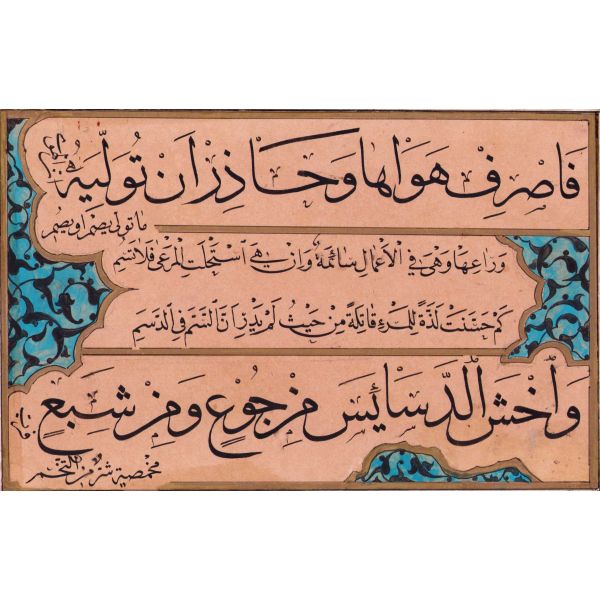 فَاصْرِفْ هَوَاهَا وَحَاذِرْ اَنْ تُوَلِّيَهُ اِنَّ الْهَوٰى
مَا تَوَلّٰى يُصْمِ اَوْ يَصِمِ
وَرَاعِهَا وَهْىَ فِى الْاَعْمَالِ سَائِمَةٌ وَاِنْ هِىَ اسْتَحْلَتِ الْمَرْعٰى فَلَا تُسِمِ
كَمْ حَسَّنَتْ لَذَّةً لِلْمَرْءِ قَاتِلَةً مِنْ حَيْثُ لَمْ يَدْرِ اَنَّ السَّمَّ فِى الدَّسَمِ
وَاخْشَ الدَّسَائِسَ مِنْ جُوعٍ وَمِنْ شِبَعٍ فَرُبَّ
مَخْمَصَةٍ شَرٌّ مِنَ التُّخَمِ